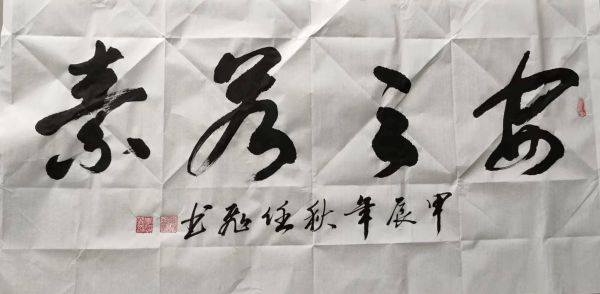 安之若素
甲辰年秋任飛书